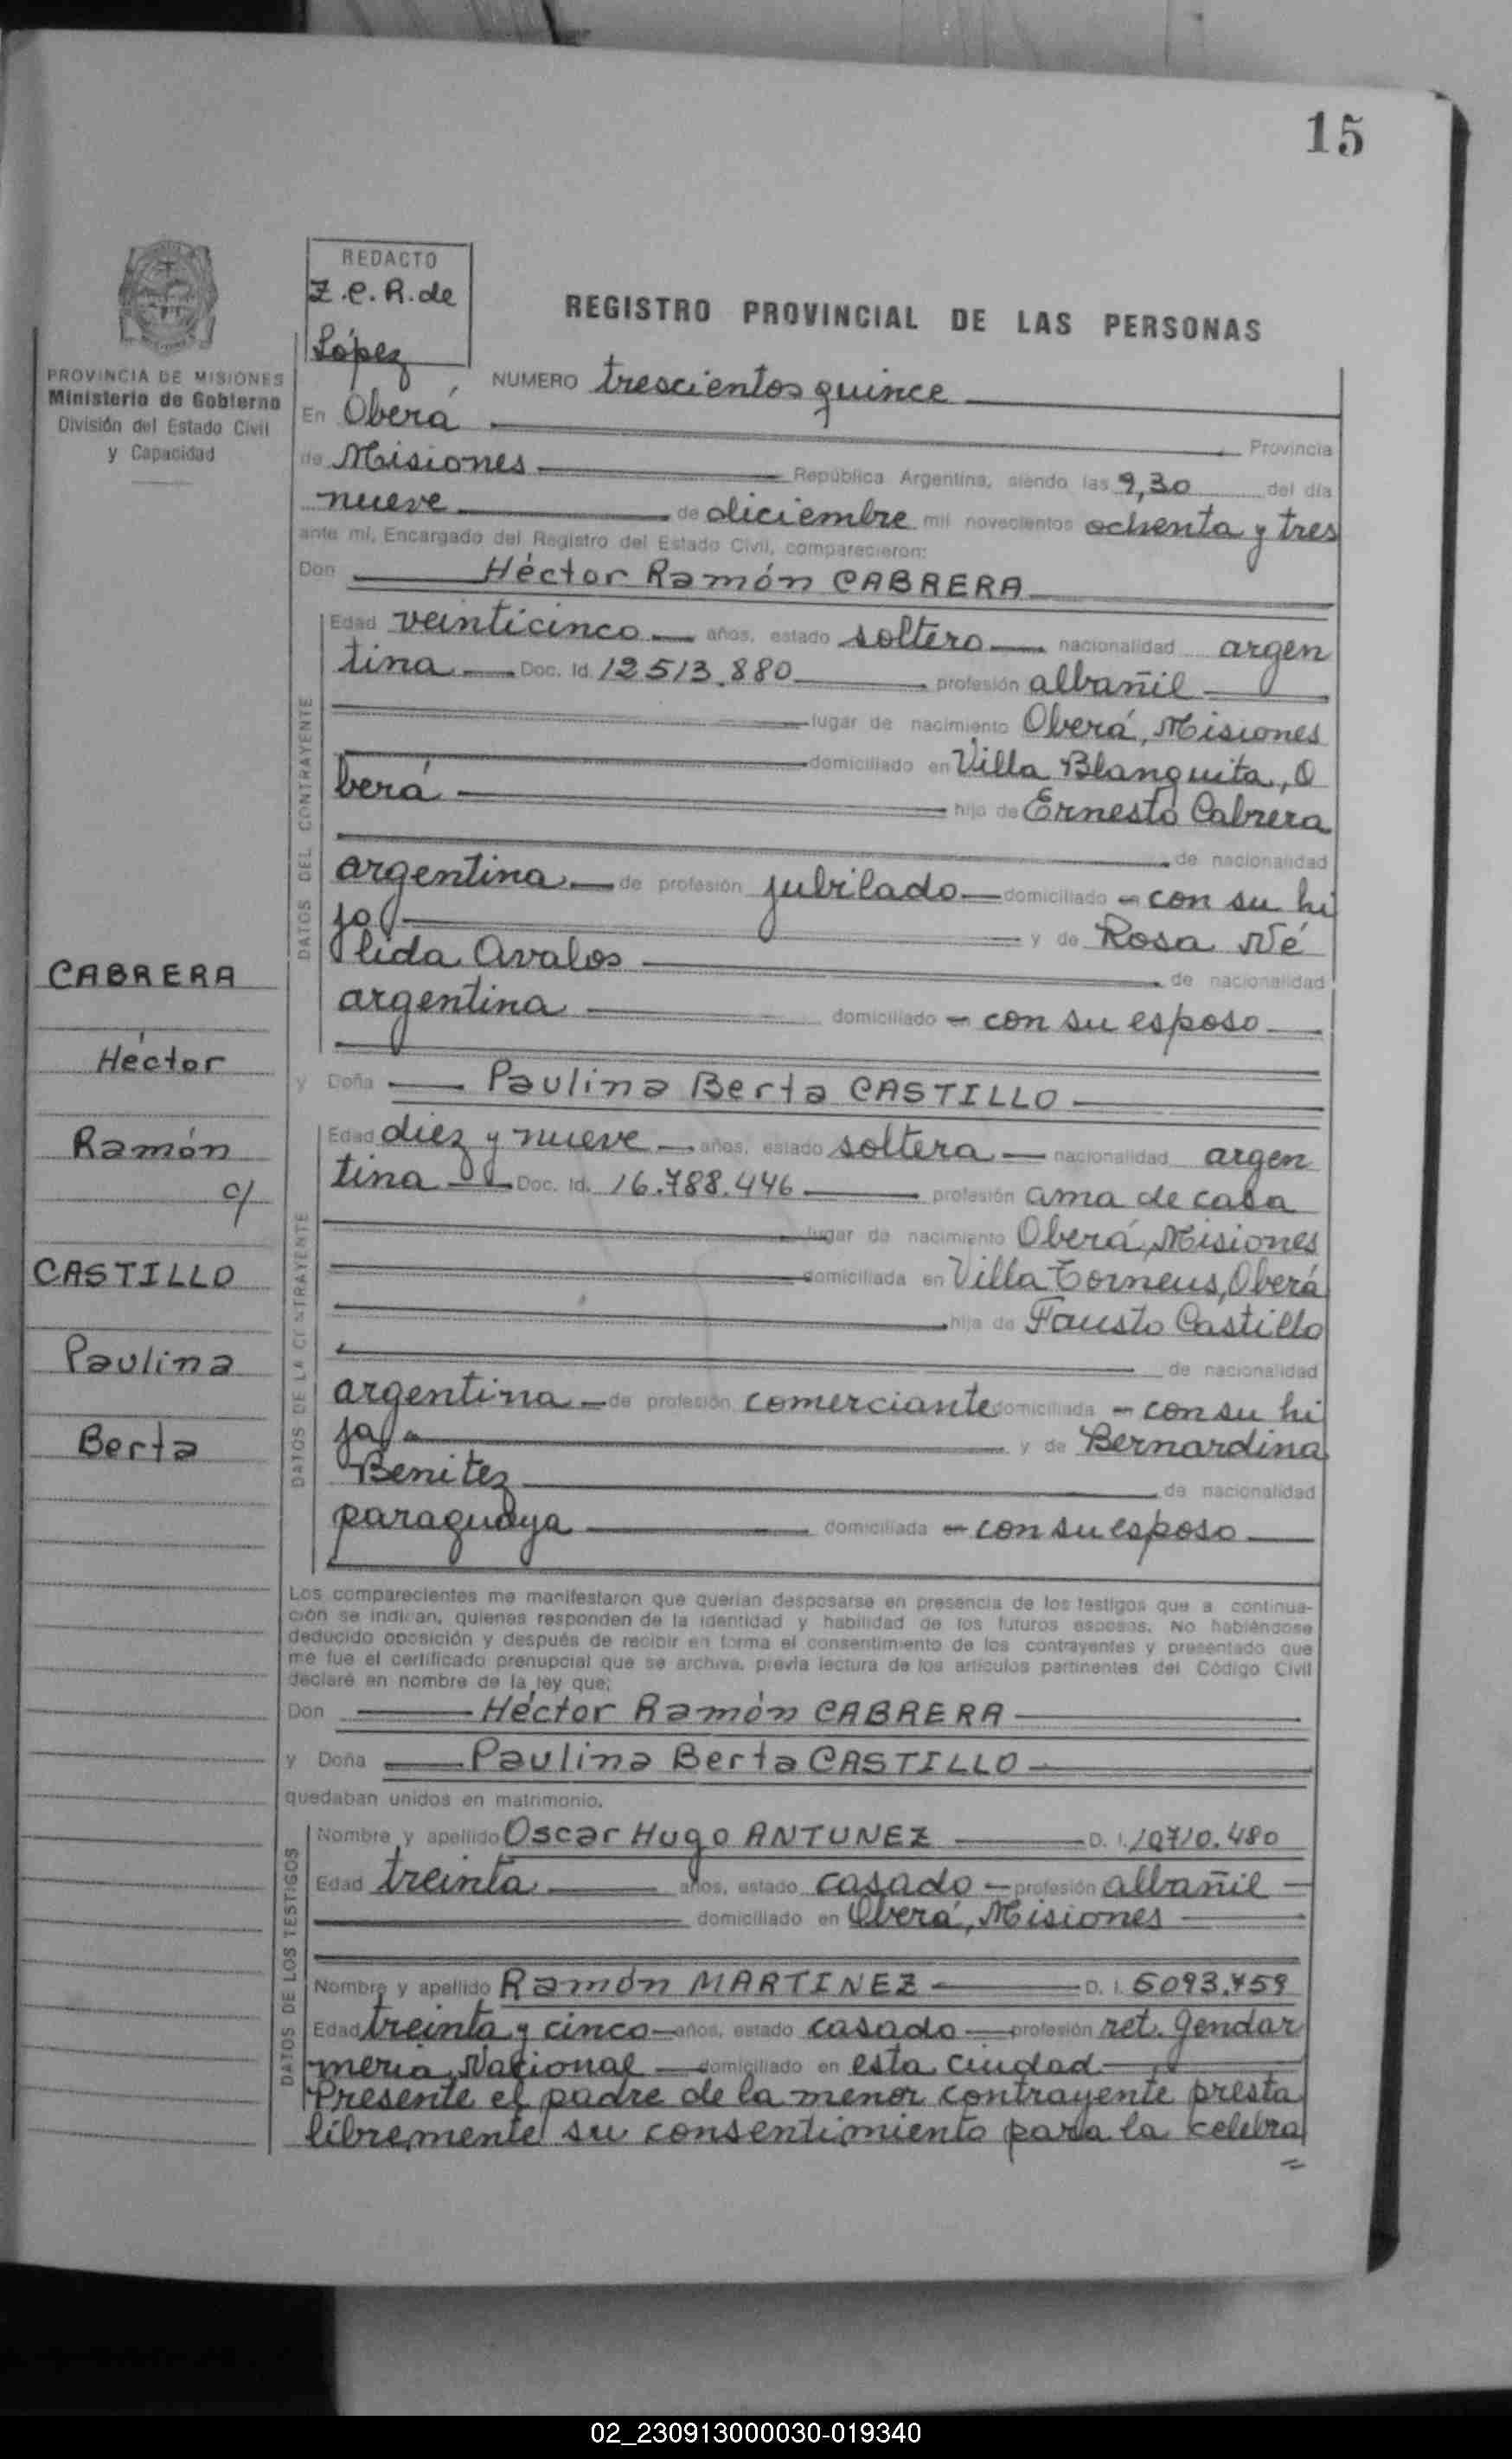 15
REDACTO
Z.C.R. de
López
REGISTRO PROVINCIAL DE LAS PERSONAS
PROVINCIA DE MISIONES
Ministerio de Gobierno
División del Estado Civil
y Capacidad
NUMERO trescientos quince
En Oberá
Provincia
de Misiones República Argentina, siendo las 9,30 del día
nueve de diciembre mil novecientos ochenta y tres
ante mí, Encargado del Registro del Estado Civil, comparecieron:
Don Héctor Ramón CABRERA
DATOS DEL CONTRAYENTE
Edad veinticinco años, estado soltero nacionalidad argen
tina Doc. Id. 12513.880 profesión albañil
lugar de nacimiento Oberá, Misiones
domiciliado en Villa Blanquita, O
berá hijo de Ernesto Cabrera
de nacionalidad
argentina de profesión jubilado domiciliado en con su hi
jo y de Rosa Né
lida Avalos de nacionalidad
argentina domiciliado en con su esposo
y Doña Paulina Berta CASTILLO
DATOS DE LA CONTRAYENTE
Edad diez y nueve años, estado soltera nacionalidad argen
tina Doc. Id. 16.788.446 profesión ama de casa
lugar de nacimiento Oberá, Misiones
domiciliada en Villa Torneus, Oberá
hija de Fausto Castillo
de nacionalidad
argentina de profesión comerciante domiciliada en con su hi
ja y de Bernardina
Benitez de nacionalidad
paraguaya domiciliada en con su esposo
CABRERA
Héctor
Ramón
c/
CASTILLO
Paulina
Berta
Los comparecientes me manifestaron que querían desposarse en presencia de los testigos que a continua-
ción se indican, quienes responden de la identidad y habilidad de los futuros esposos. No habiéndose
deducido oposición y después de recibir en forma el consentimiento de los contrayentes y presentado que
me fue el certificado prenupcial que se archiva, previa lectura de los artículos pertinentes del Código Civil
declaré en nombre de la ley que:
Don Héctor Ramón CABRERA
y Doña Paulina Berta CASTILLO
quedaban unidos en matrimonio.
DATOS DE LOS TESTIGOS
Nombre y apellido Oscar Hugo ANTUNEZ D. I. 10710.480
Edad treinta años, estado casado profesión albañil
domiciliado en Oberá, Misiones
Nombre y apellido Ramón MARTINEZ D. I. 5093.459
Edad treinta y cinco años, estado casado profesión ret. Gendar
mería Nacional domiciliado en esta ciudad
Presente el padre de la menor contrayente presta
libremente su consentimiento para la celebra
=
02_230913000030-019340